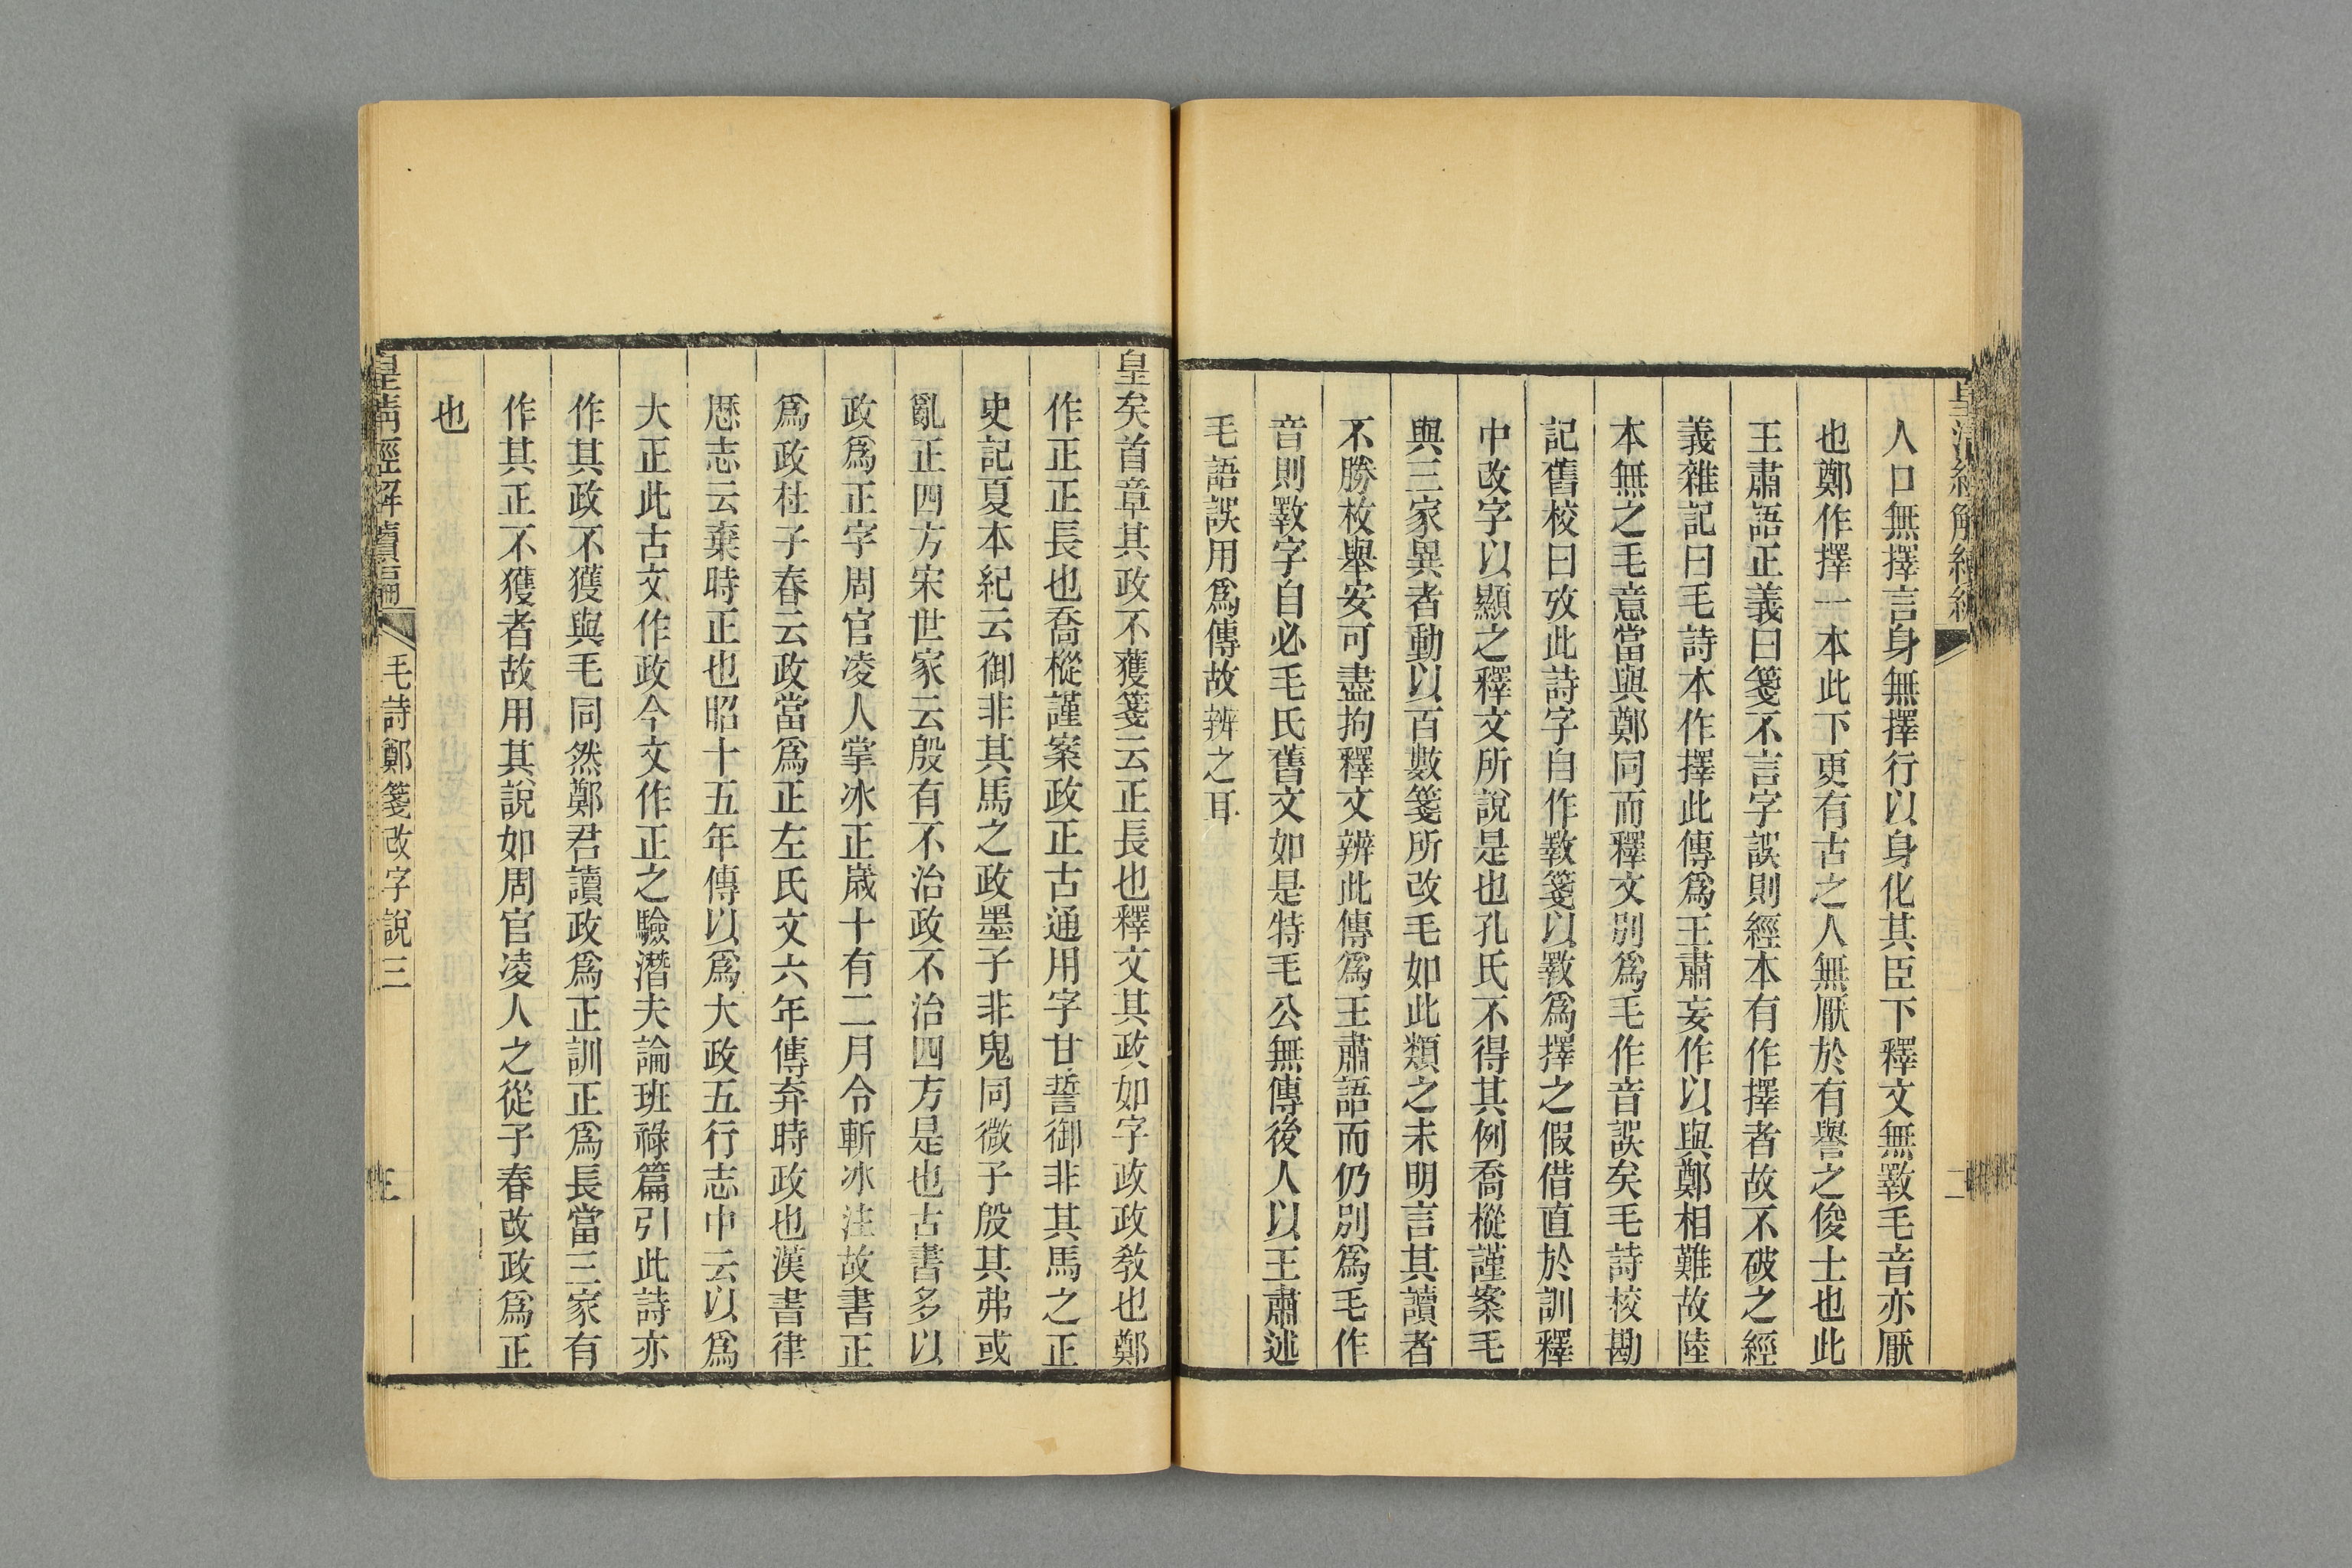 人口無擇言身無擇行以身化其臣下釋文無斁毛音亦厭
也鄭作擇一本此下更有古之人無厭於有譽之俊士也此
王肅語正義曰箋不言字誤則經本有作擇者故不破之經
義雜記曰毛詩本作擇此傳爲王肅妄作以與鄭相難故陸
本無之毛意當與鄭同而釋文別爲毛作音誤矣毛詩校勘
記舊校曰攷此詩字自作斁箋以斁爲擇之假借直於訓釋
中改字以顯之釋文所說是也孔氏不得其例喬樅謹案毛
與三家異者動以百數箋所改毛如此類之未明言其讀者
不勝枚舉安可盡拘釋文辨此傳爲王肅語而仍別爲毛作
音則斁字自必毛氏舊文如是特毛公無傳後人以王肅述
毛語誤用爲傳故辨之耳
皇矣首章其政不獲箋云正長也釋文其政如字政政敎也鄭
作正正長也喬樅謹案政正古通用字甘誓御非其馬之正
史記夏本紀云御非其馬之政墨子非鬼同微子殷其弗或
亂正四方宋世家云殷有不治政不治四方是也古書多以
政爲正字周官凌人掌冰正歲十有二月令斬冰注故書正
爲政杜子春云政當爲正左氏文六年傳弃時政也漢書律
厤志云棄時正也昭十五年傳以爲大政五行志中云以爲
大正此古文作政今文作正之驗潛夫論班祿篇引此詩亦
作其政不獲與毛同然鄭君讀政爲正訓正爲長當三家有
作其正不獲者故用其說如周官凌人之從子春改政爲正
也
皇清經解續編
毛詩鄭箋改字說三
三